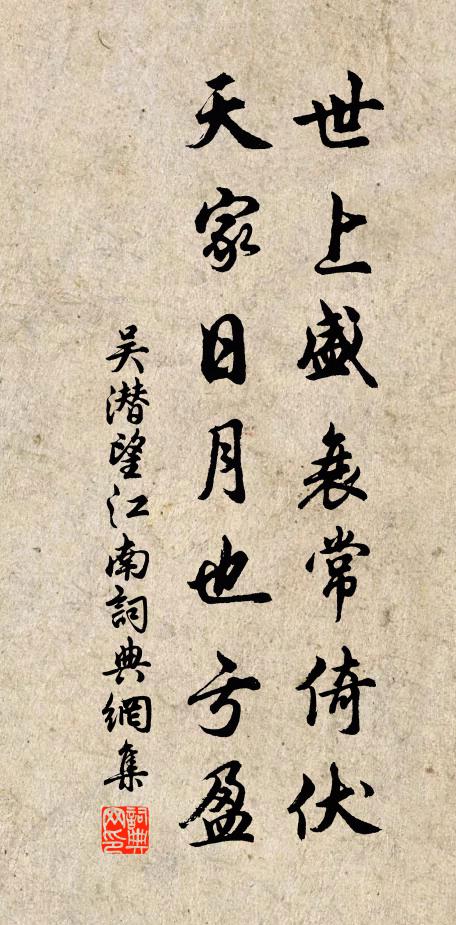 世上盛衰常倚伏
天家日月也亏盈
吴潜望江南詞典網集
詞典网印